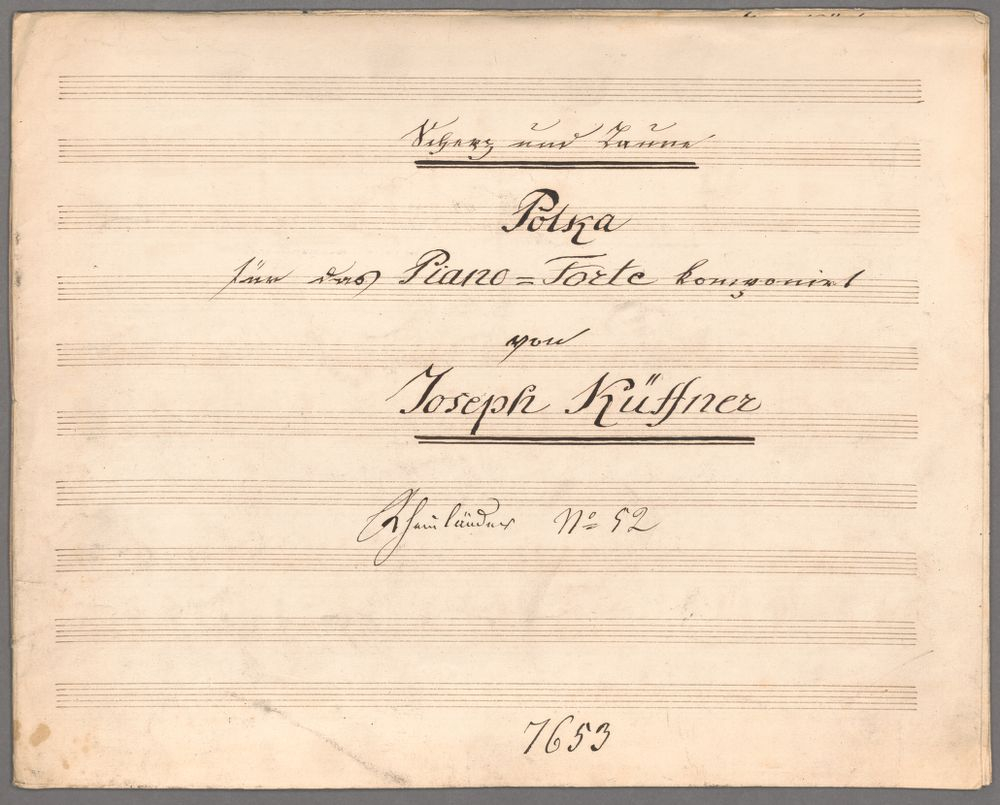 Scherz und Laune
Polka
für das Piano=Forte komponirt
von
Joseph Küffner
Rheinländer No 52
7653